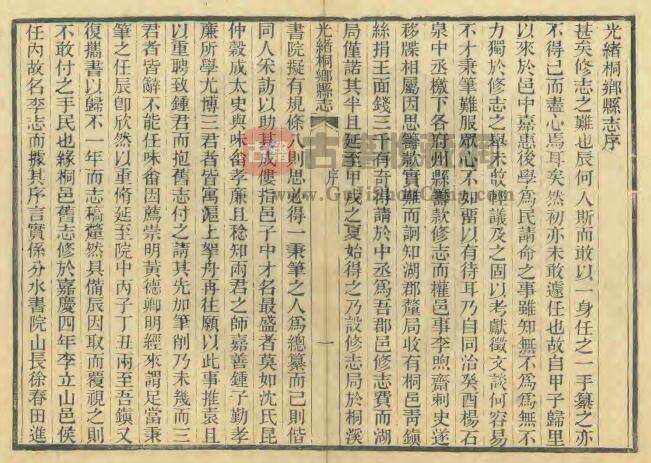 光緒桐鄉縣志序
甚矣修志之難也辰何人斯而敢以一身任之一手纂之亦
不得已而盡心焉耳矣然初亦未敢遽任也故自甲子歸里
以來於邑中嘉惠後學爲民請命之事雖知無不爲爲無不
力獨於修志之舉未敢輕議及之固以考獻徵文談何容易
不才秉筆難服眾心不如蓄以有待耳乃自同治癸酉楊石
泉中丞檄下各府州縣籌款修志而權邑事李煦齋刺史遂
移牒相屬因思籌款實難而詗知湖郡釐局收有桐邑青鎮
絲捐王面錢三千有奇得請於中丞爲吾郡邑修志費而湖
局僅諾其半且延至甲戌之夏始得之乃設修志局於桐溪
光緒桐鄉縣志
序
一
書院擬有規條八則思延得一秉筆之人爲總纂而已則偕
同人采訪以助其成僂指邑子中才名最盛者莫如沈氏昆
仲穀成太史與味畬孝廉且稔知兩君之師嘉善鍾子勤孝
廉所學尤博三君者皆寓滬上挐舟再往願以此事推袁且
以重聘致鍾君而抱舊志付之請其先加筆削乃未幾而三
君者皆辭不能任味畬因薦崇明黃德卿明經來謂足當秉
筆之任辰卽欣然以重脩延至院中丙子丁丑兩至吾鎮又
復攜書以歸不一年而志稿釐然具備辰因取而覆視之則
不敢付之手民也緣桐邑舊志修於嘉慶四年李立山邑侯
任內故名李志而據其序言實係分水書院山長徐春田進
古籍
www.GujiShuCang.com